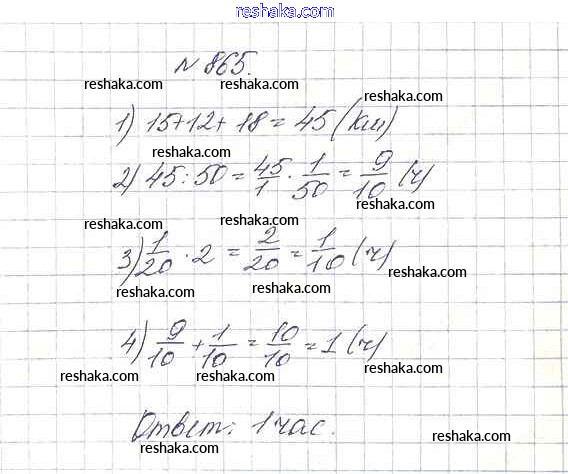 reshaka.com
№ 865.
reshaka.com reshaka.com
reshaka.com
1) 15+12+18=45 (км)
reshaka.com
2) 45:50=45/1·1/50=9/10 (ч)
reshaka.com
reshaka.com reshaka.com
3) 1/20·2=2/20=1/10 (ч)
reshaka.com
reshaka.com
4) 9/10+1/10=10/10=1 (ч)
reshaka.com reshaka.com
Ответ: 1 час.
reshaka.com
reshaka.com